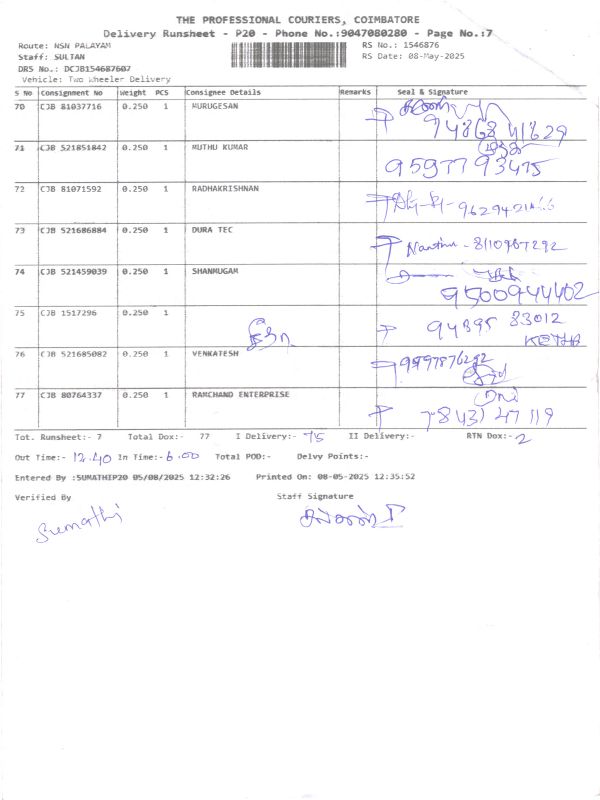 THE PROFESSIONAL COURIERS, COIMBATORE
Delivery Runsheet - P20 - Phone No.:9047080280 - Page No.:7
Route: NSN PALAYAM
RS No.: 1546876
Staff: SULTAN
RS Date: 08-May-2025
DRS No.: DCJB154687607
Vehicle: Two Wheeler Delivery
S No Consignment No Weight PCS Consignee Details Remarks Seal & Signature
70 CJB 81037716 0.250 1 MURUGESAN
71 CJB 521851842 0.250 1 MUTHU KUMAR
9597793475
72 CJB 81071592 0.250 1 RADHAKRISHNAN
73 CJB 521686884 0.250 1 DURA TEC
8110967292
74 CJB 521459039 0.250 1 SHANMUGAM
9500944402
75 CJB 1517296 0.250 1
94395 83012
76 CJB 521685082 0.250 1 VENKATESH
77 CJB 80764337 0.250 1 RAMCHAND ENTERPRISE
78431 47119
Tot. Runsheet:- 7 Total Dox:- 77 I Delivery:- 75 II Delivery:- RTN Dox:- 2
Out Time:- 12.40 In Time:- 6.00 Total POD:- Delvy Points:-
Entered By :SUMATHIP20 05/08/2025 12:32:26 Printed On: 08-05-2025 12:35:52
Verified By Staff Signature
Sumathi